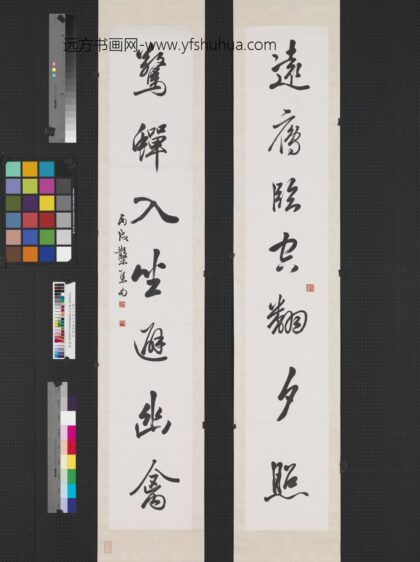 远方书画网-www.yfshuhua.com
遠鴈臨空翻夕照
驚蟬入坐避幽禽
丙戌